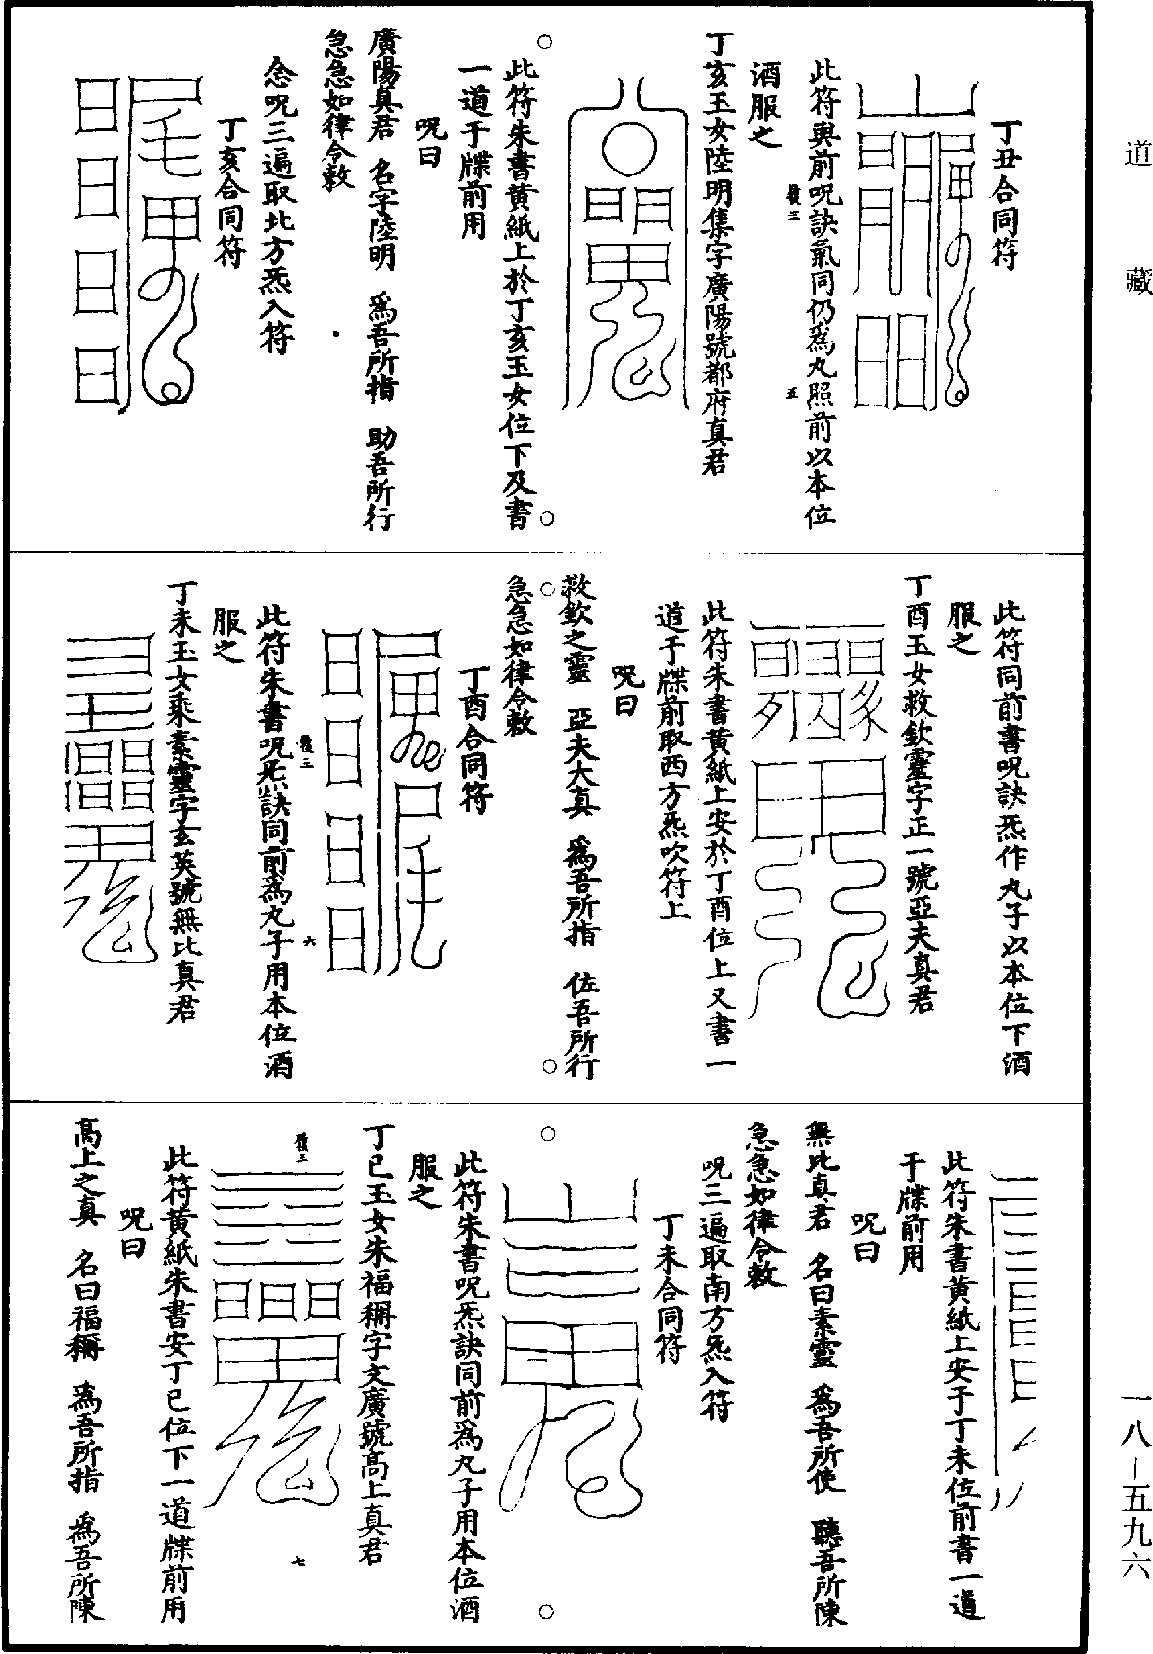 道藏
一八-五九六
丁丑合同符
此符與前呪訣氣同仍爲丸照前以本位
酒服之
丁亥玉女陸明集字廣陽號都府真君
此符朱書黄紙上於丁亥玉女位下及書
一道于牒前用
呪曰
廣陽真君 名字陸明 爲吾所指 助吾所行
急急如律令敕
念呪三遍取北方炁入符
丁亥合同符
此符同前書呪訣炁作丸子以本位下酒
服之
丁酉玉女救欽靈字正一號亞夫真君
此符朱書黄紙上安於丁酉位上又書一
道于牒前取西方炁吹符上
呪曰
救欽之靈 亞夫大真 爲吾所指 佐吾所行
急急如律令敕
丁酉合同符
此符朱書呪炁訣同前爲丸子用本位酒
服之
丁未玉女乘素靈字玄英號無比真君
此符朱書黄紙上安于丁未位前書一道
于牒前用
呪曰
無比真君 名曰素靈 爲吾所使 聽吾所陳
急急如律令敕
呪三遍取南方炁入符
丁未合同符
此符朱書呪炁訣同前爲丸子用本位酒
服之
丁巳玉女朱福禰字文廣號高上真君
此符黄紙朱書安丁巳位下一道牒前用
呪曰
高上之真 名曰福禰 爲吾所指 爲吾所陳